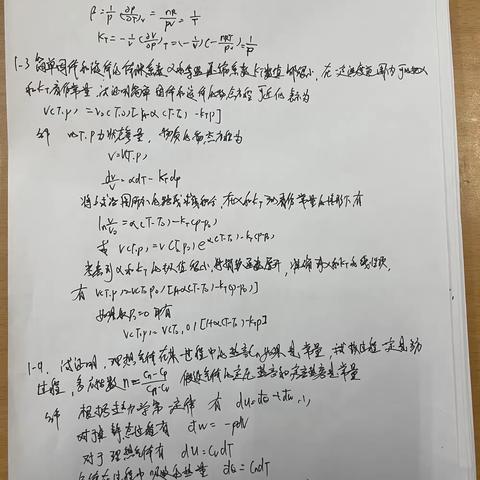 β = 1/p (∂p/∂T)v = nR/pV = 1/T
KT = -1/V (∂V/∂p)T = (-1/V)(-nRT/p²) = 1/p
1-3 简单固体和液体的体胀系数α和等温压缩系数KT数值都很小, 在一定温度范围内可把α
和KT看作常量, 试证明简单固体和液体的物态方程可近似为
V(T,p) = V0(T0,0)[1+α(T-T0) - KTp]
解 V(T,p)为状态参量, 物质的物态方程为
V=V(T,p)
dV/V = αdT - KTdp
ln V/V0 = α(T-T0) - KT(p-p0)
或 V(T,p) = V(T0,p0) e^α(T-T0)-KT(p-p0)
考虑到α和KT的数值很小, 将指数函数展开, 准确到α和KT的线性项,
有 V(T,p) = V(T0,p0)[1+α(T-T0)-KT(p-p0)]
如果取p0=0 即有
V(T,p) = V(T0,0)[1+α(T-T0)-KTp]
试证明, 理想气体在某一过程中的热容Cn如果是常量, 该过程一定是多
方过程, 多方指数 n = Cn-Cp/Cn-Cv 假设气体的定压热容和定容热容是常量
解 根据热力学第一定律 有 dU=đQ+đW
对于准静态过程有 đW = -pdV
对于理想气体有 dU = CvdT
đQ = CndT